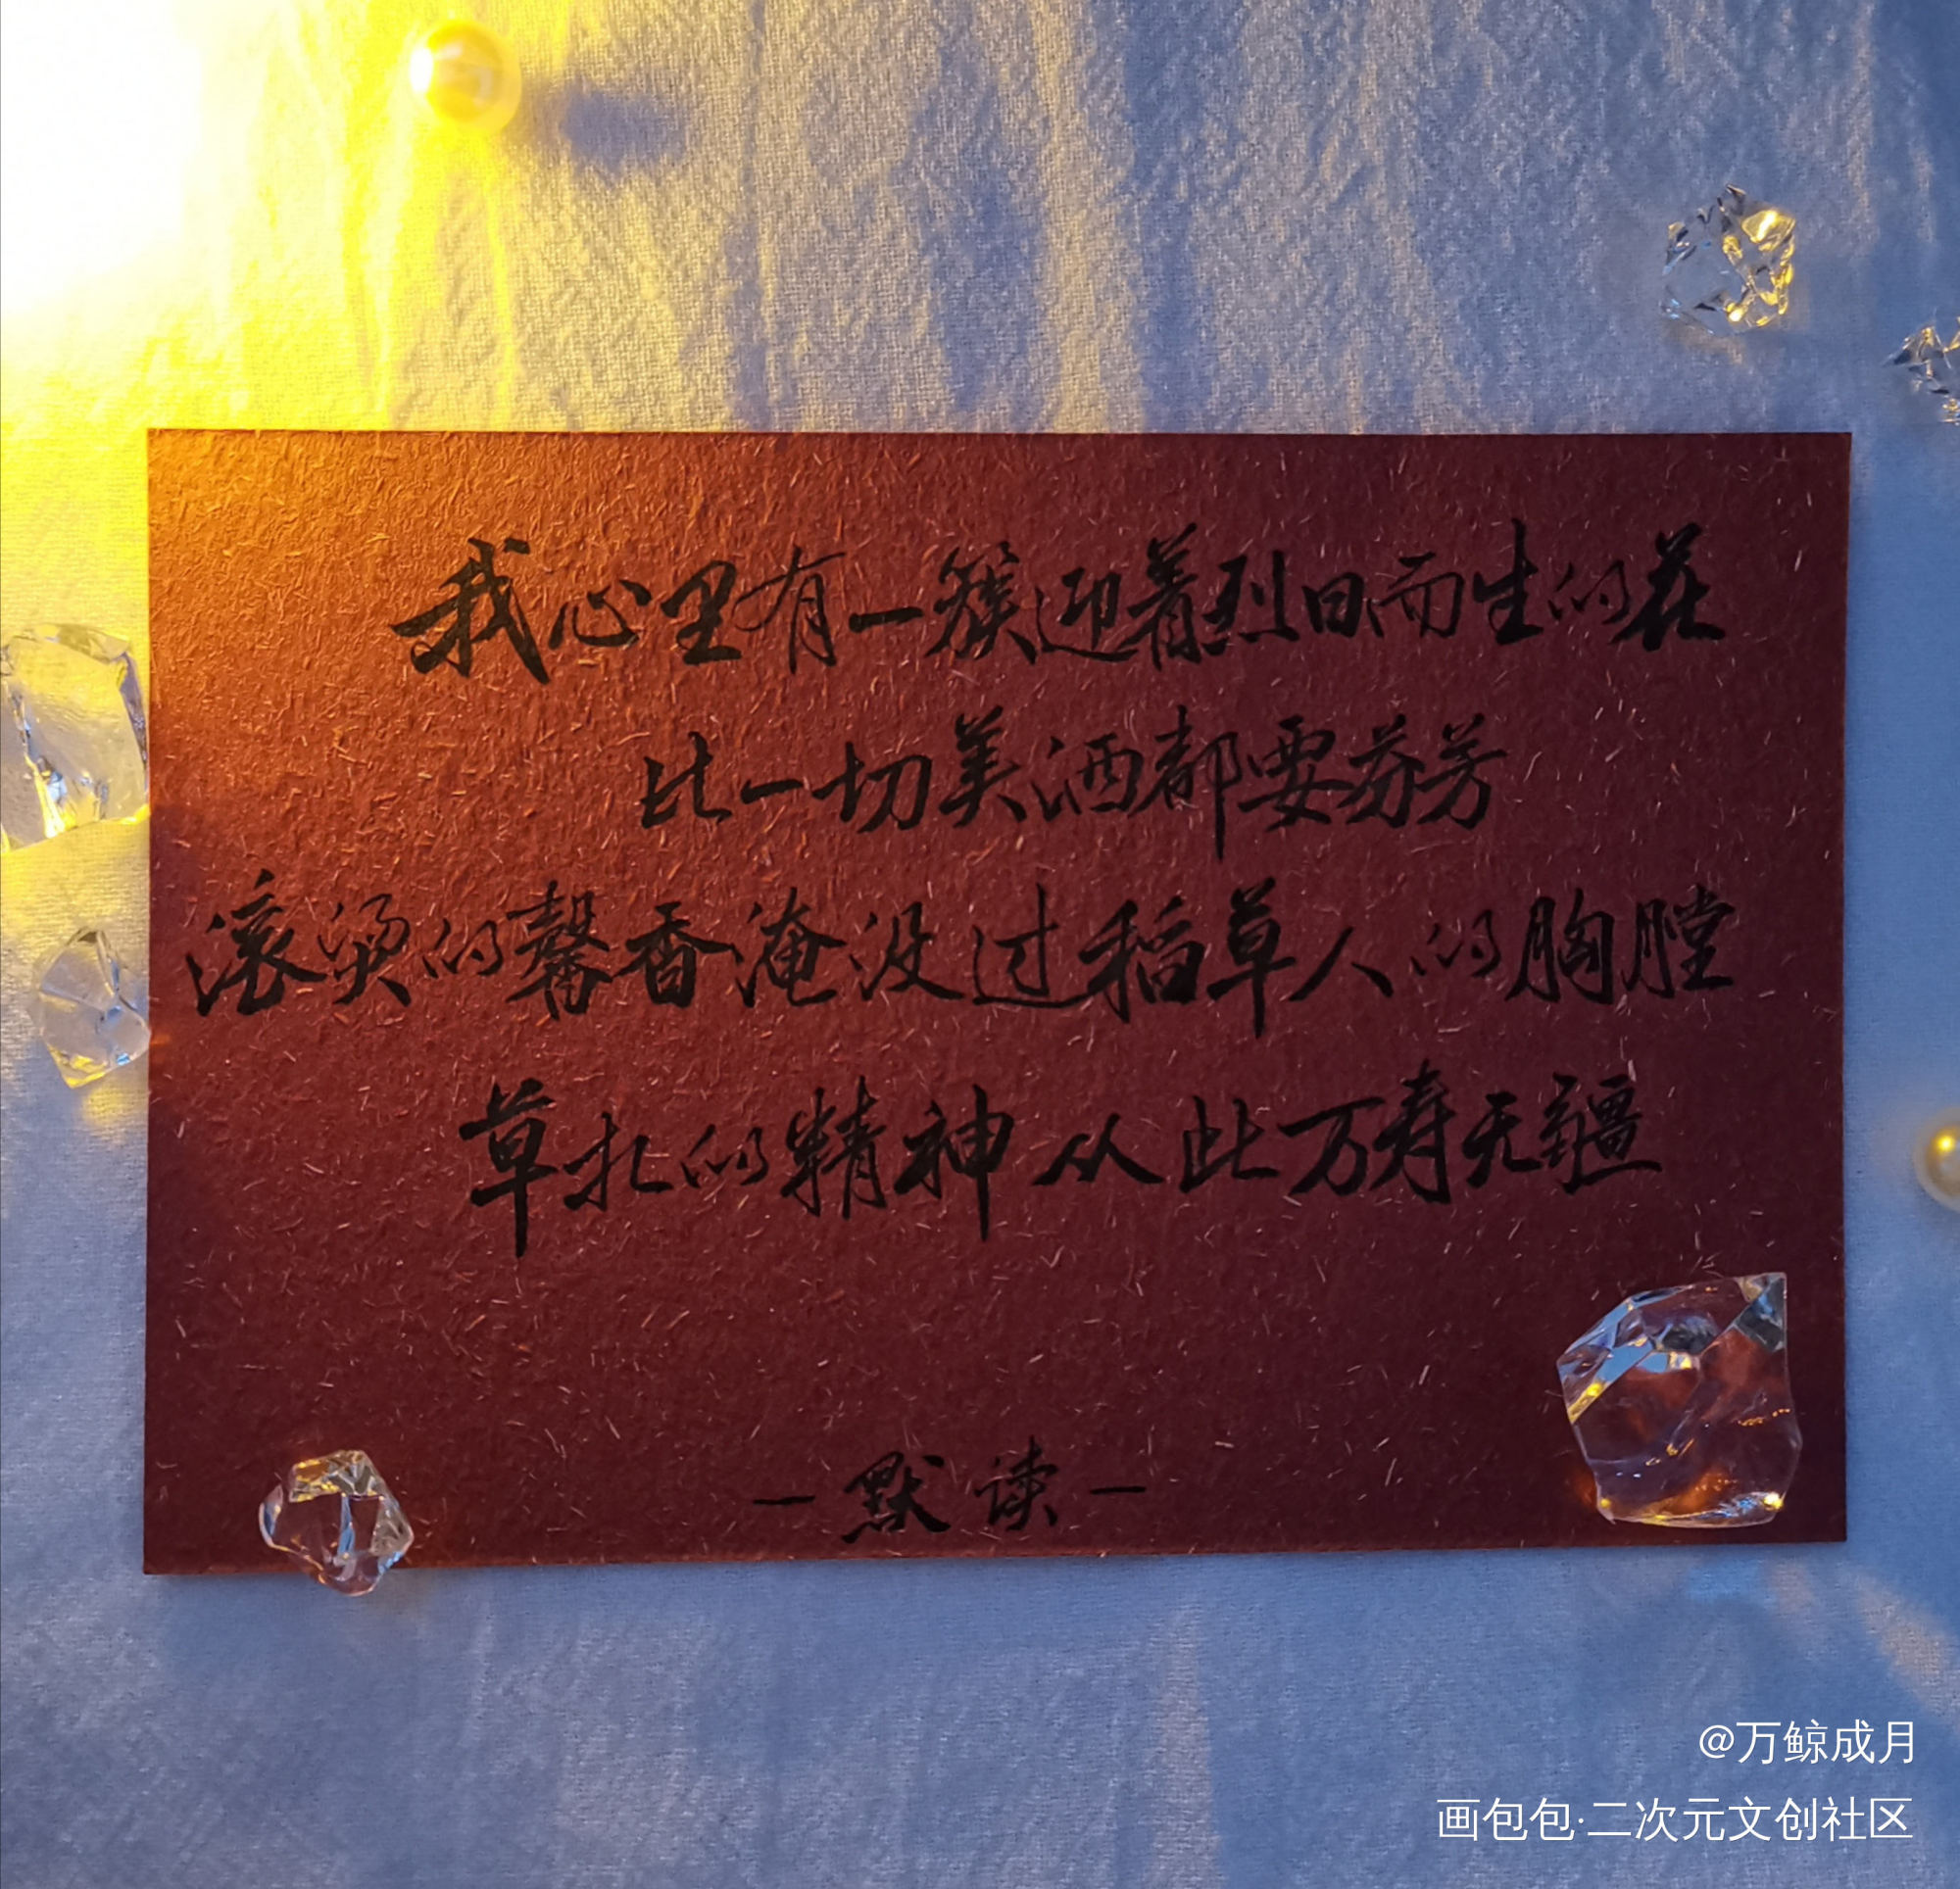 我心里有一簇迎着烈日而生的花
比一切美酒都要芬芳
滚烫的馨香淹没过稻草人的胸膛
草扎的精神从此万寿无疆
—默读—
@万鲸成月
画包包·二次元文创社区